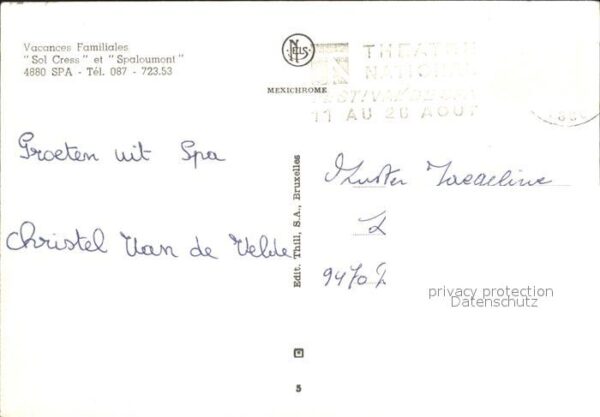 Vacances Familiales
"Sol Cress" et "Spaloumont"
4880 SPA - Tél. 087 - 723.53
NELS
MEXICHROME
THEATRE
NATIONAL
FESTIVAL DE SPA
11 AU 20 AOUT
Groeten uit Spa
Christel Van de Velde
Edit. Thill, S.A., Bruxelles
Zuster Jacqueline
L
9470 L
privacy protection
Datenschutz
5